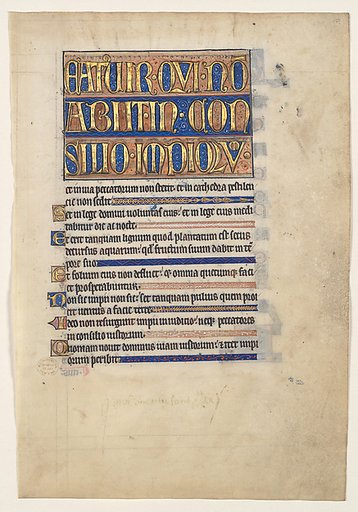 EATUIR·QUI·NO
ABIIT·IN·CON
SILIO·IMPIORU·
et in uia peccatorum non stetit· et in cathedra pestilen
cie non sedit·
Set in lege domini uoluntas eius· et in lege eius medi
tabitur die ac nocte·
Et erit tanquam lignum quod plantatum est secus
decursus aquarum· quod fructum suum dabit in te
pore suo·
Et folium eius non defluet· et omnia quecumque faci
et prosperabuntur·
Non sic impii non sic· set tanquam puluis quem proi
cit uentus a facie terre·
Ideo non resurgunt impii in iudicio· neque peccatores
in consilio iustorum·
Quoniam nouit dominus uiam iustorum· et iter impi
orum peribit·